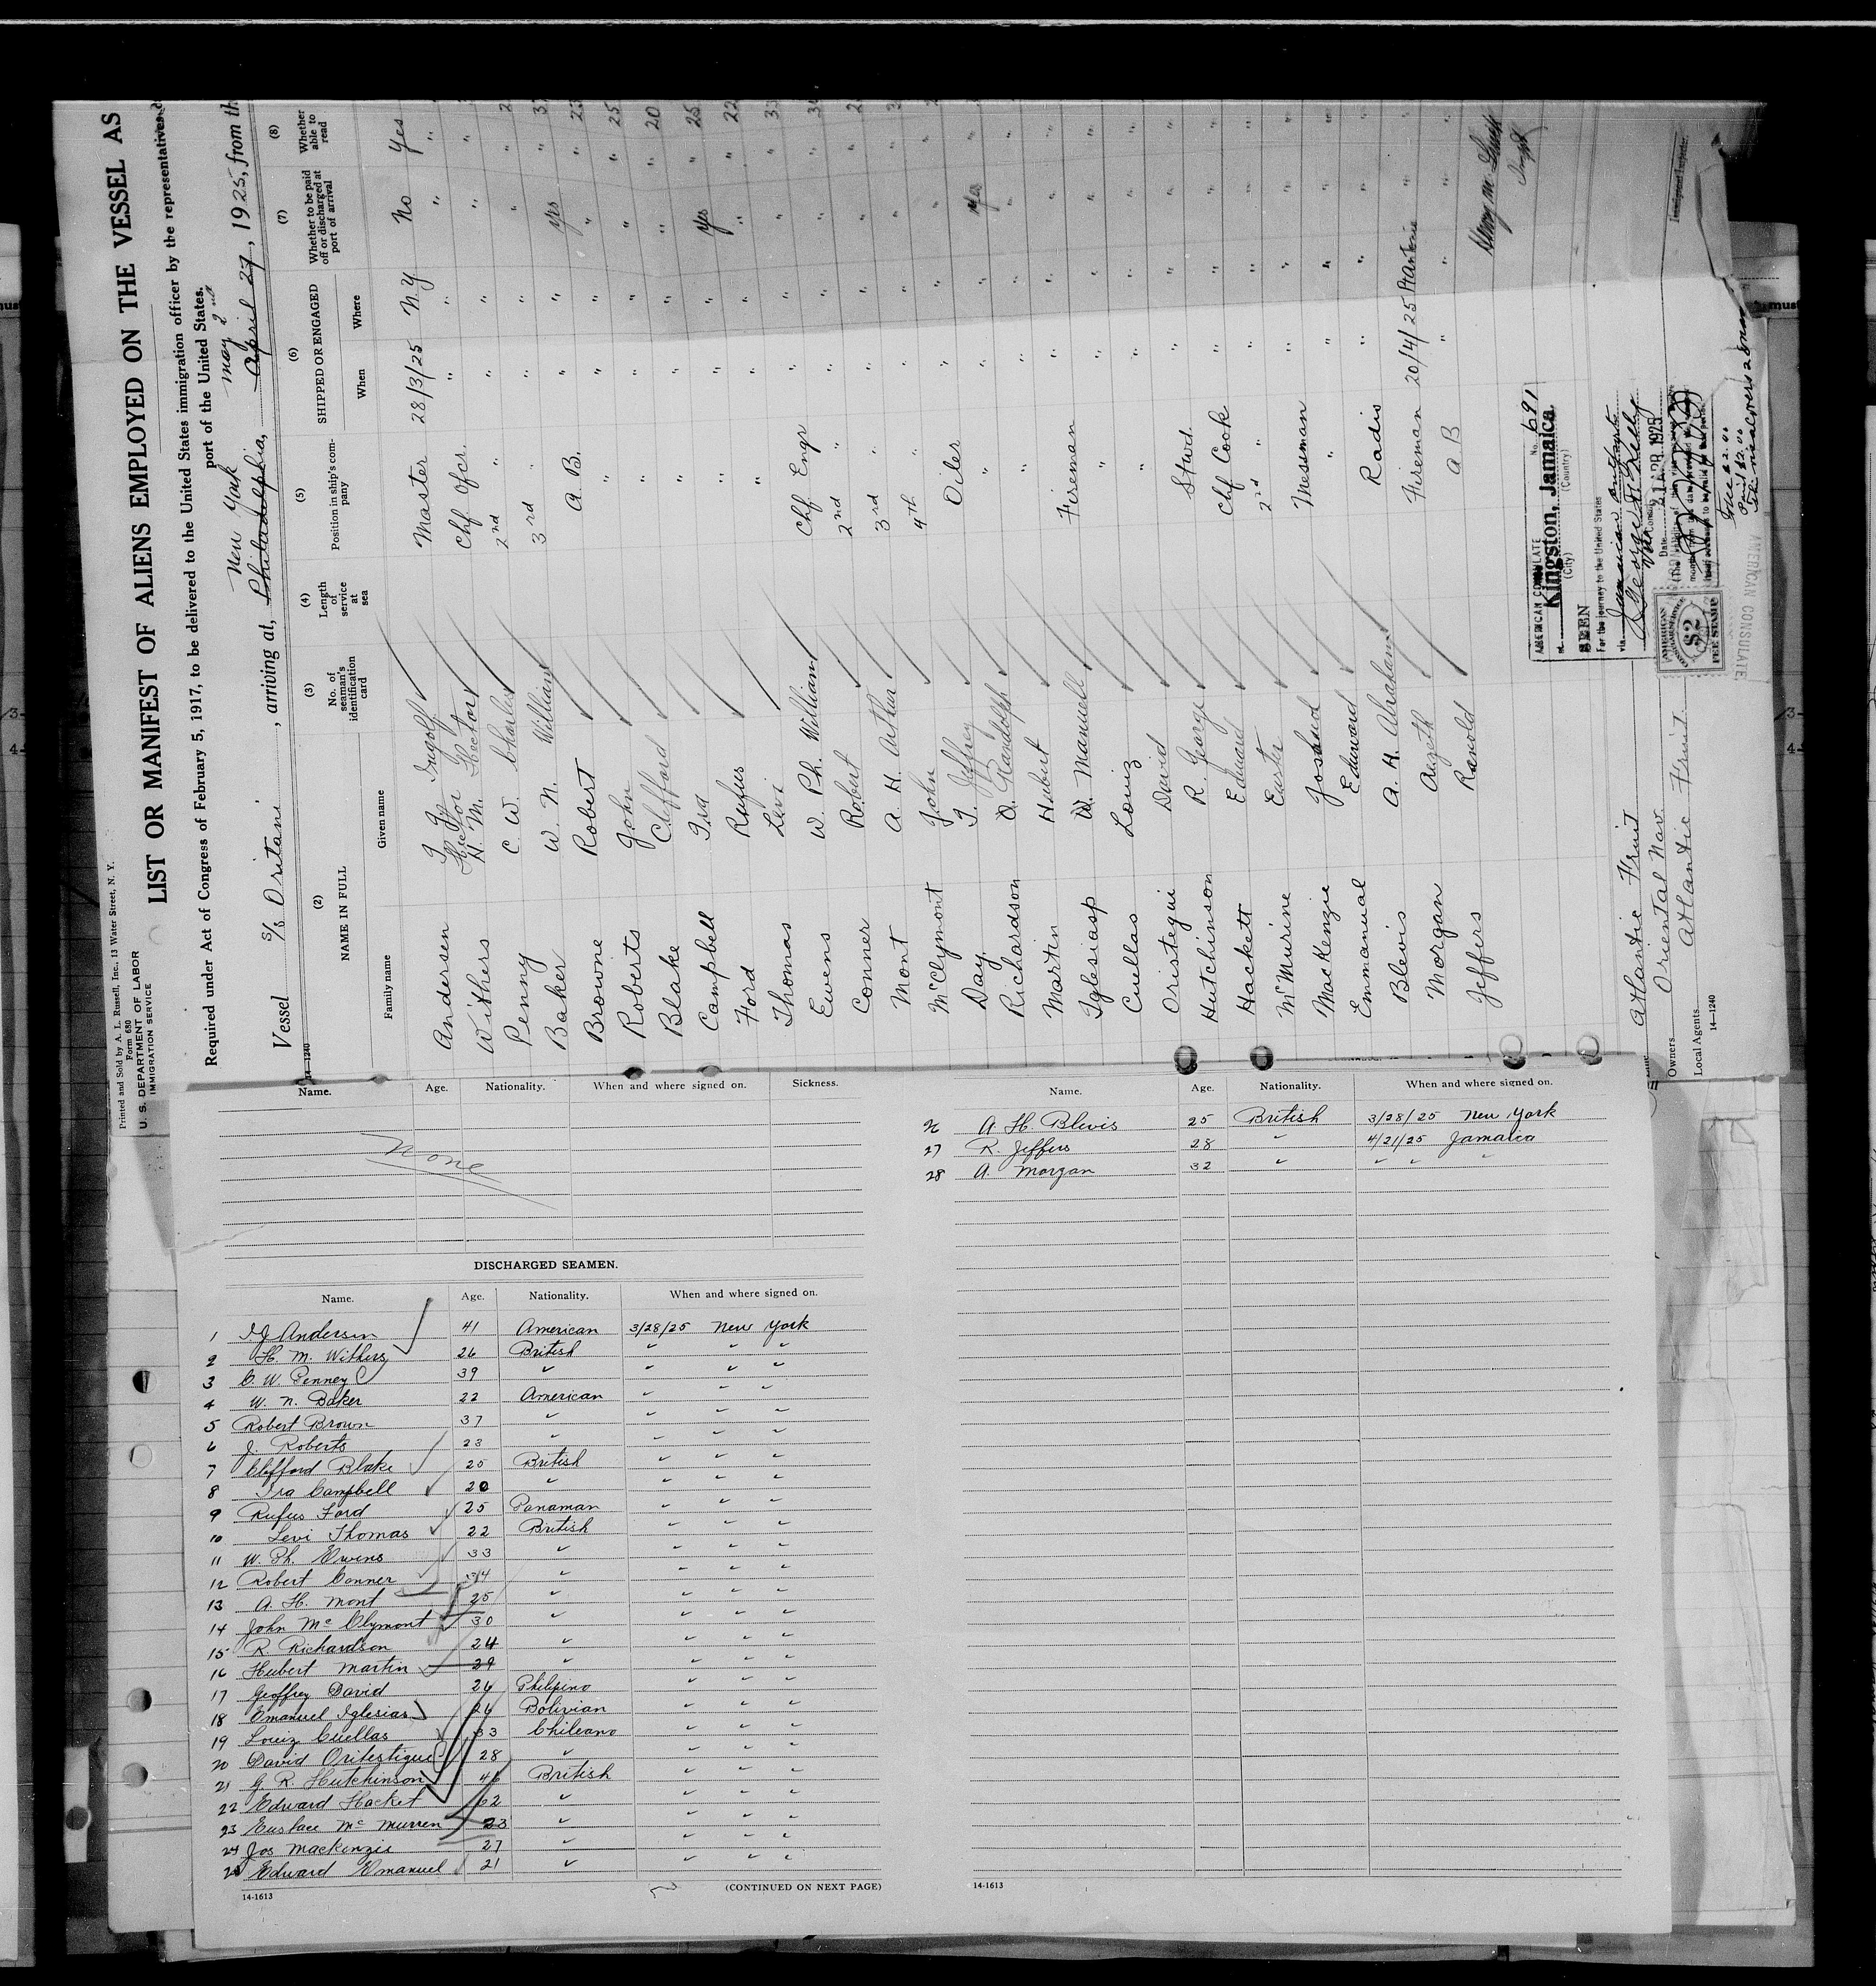 Printed and Sold by A. L. Russell, Inc., 13 Water Street, N. Y.
Form 680
U. S. DEPARTMENT OF LABOR
IMMIGRATION SERVICE
LIST OR MANIFEST OF ALIENS EMPLOYED ON THE VESSEL AS
Required under Act of Congress of February 5, 1917, to be delivered to the United States immigration officer by the representatives
port of the United States.
New York may 2nd
Vessel S/S Oritani, arriving at, Philadelphia, April 27, 1925, from th
14-1240
(2) (3) (4) (5) (6) (7) (8)
NAME IN FULL
Family name Given name
No. of seaman's identification card
Length of service at sea
Position in ship's company
SHIPPED OR ENGAGED
When Where
Whether to be paid off or discharged at port of arrival
Whether able to read
Andersen Ingolf Master 28/3/25 N.Y No Yes
Withers H. M. Hector Chf Ofcr. " " " "
Penny C. W. Charles 2nd " " " "
Baker W. N. William 3rd " " " "
Browne Robert A. B. " " yes "
Roberts John " " " " "
Blake Clifford " " " " "
Campbell Ira " " " " "
Ford Rufus " " " yes "
Thomas Levi " " " " "
Ewens W. Ph. William Chf Engr " " " "
Conner Robert 2nd " " " " "
Mont A. H. Arthur 3rd " " " " "
McClymont John 4th " " " "
Day T. Jeffrey Oiler " " " "
Richardson Randolph " " " yes "
Martin Hubert " " " " "
Iglesiasp Manuell Fireman " " " "
Cullas Louiz " " " " "
Oristegui David " " " " "
Hutchinson R. George Stwd. " " " "
Hackett Edward Chf Cook " " " "
McMurine 2nd " " " " "
MacKenzie Joshua Messman " " " "
Emmanual Edward " " " " "
Blevis A. H. Abraham Radio " " " "
Morgan Azeth Fireman 20/4/25 " "
Jeffers Ranold A B " " " "
AMERICAN CONSULATE
No. 691
at Kingston, Jamaica
(City) (Country)
SEEN
For the journey to the United States
via
George H. Kelly
Date
AMERICAN
$2
FEE STAMP
AMERICAN CONSULATE
Atlantic Fruit
Owners Oriental Nav.
Local Agents Atlantic Fruit.
14-1240
Name. Age. Nationality. When and where signed on. Sickness.
None
DISCHARGED SEAMEN.
Name. Age. Nationality. When and where signed on.
1 Andersen 41 American 3/28/25 New York
2 H. M. Withers 26 British " " "
3 C. W. Penney 39 " " " "
4 W. N. Baker 22 American " " "
5 Robert Brown 37 " " " "
6 J. Roberts 23 " " " "
7 Clifford Blake 25 British " " "
8 Ira Campbell 20 " " " "
9 Rufus Ford 25 Panaman " " "
10 Levi Thomas 22 British " " "
11 W. Ph. Ewens 33 " " " "
12 Robert Conner 34 " " " "
13 A. H. Mont 25 " " " "
14 John Mc Clymont 30 " " " "
15 R. Richardson 24 " " " "
16 Hubert Martin 29 " " " "
17 Geoffrey David 26 Philipino " " "
18 Emanuel Iglesias 26 Bolivian " " "
19 Louiz Cuellas 33 Chileano " " "
20 David Oritestigue 28 " " " "
21 G. R. Hutchinson 46 British " " "
22 Edward Hacket 62 " " " "
23 Eustace Mc Murren 23 " " " "
24 Jos Mackenzie 27 " " " "
25 Edward Emanuel 21 " " " "
14-1613 (CONTINUED ON NEXT PAGE)
Name. Age. Nationality. When and where signed on.
26 A. H. Blevis 25 British 3/28/25 New York
27 R. Jeffers 28 " 4/21/25 Jamaica
28 A. Morgan 32 " " " "
14-1613